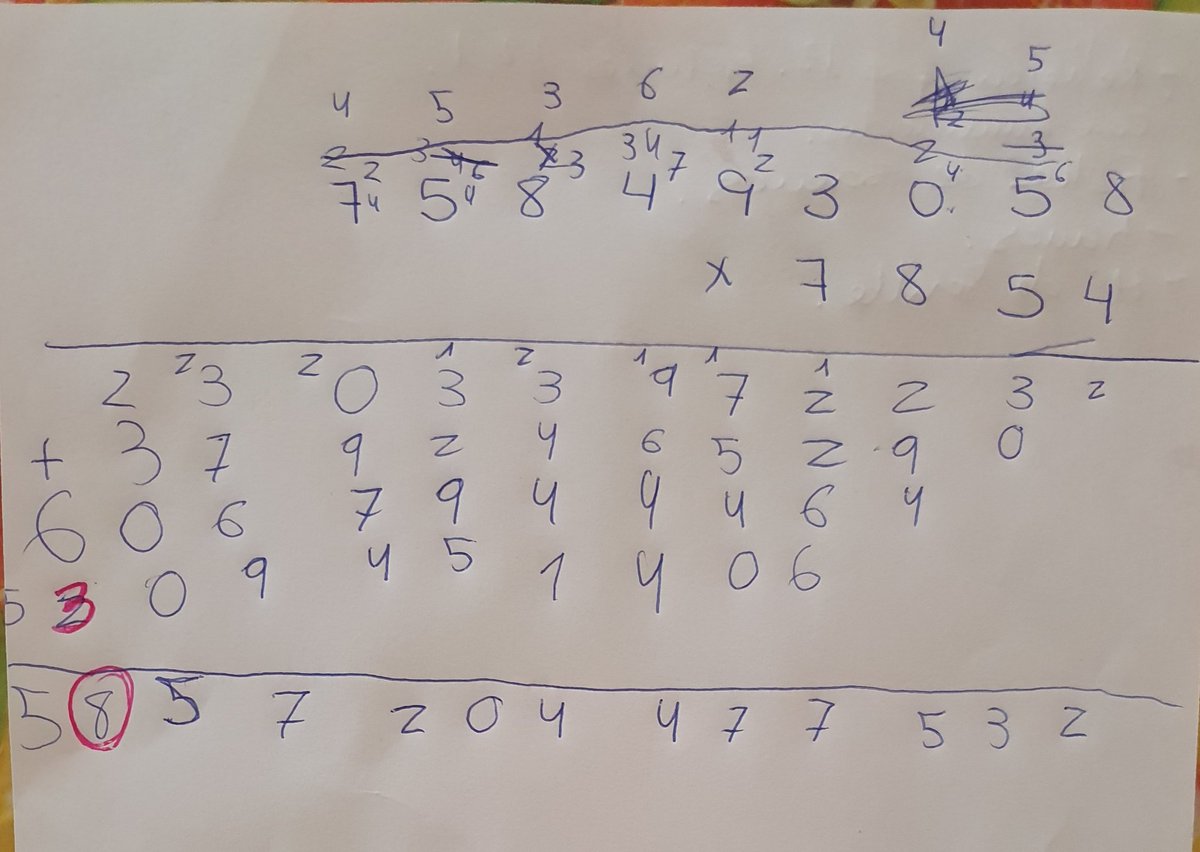 4
4 5 3 6 2 5
2 3 1 3 4 1 1 2 3
2 6 3 7 2 4 6
7 4 5 4 8 4 9 3 0 5 8
x 7 8 5 4
2 2 1 2 1 1 1
2 3 0 3 3 9 7 2 2 3 2
+ 3 7 9 2 4 6 5 2 9 0
6 0 6 7 9 4 4 4 6 4
5 3 0 9 4 5 1 4 0 6
5 8 5 7 2 0 4 4 7 7 5 3 2